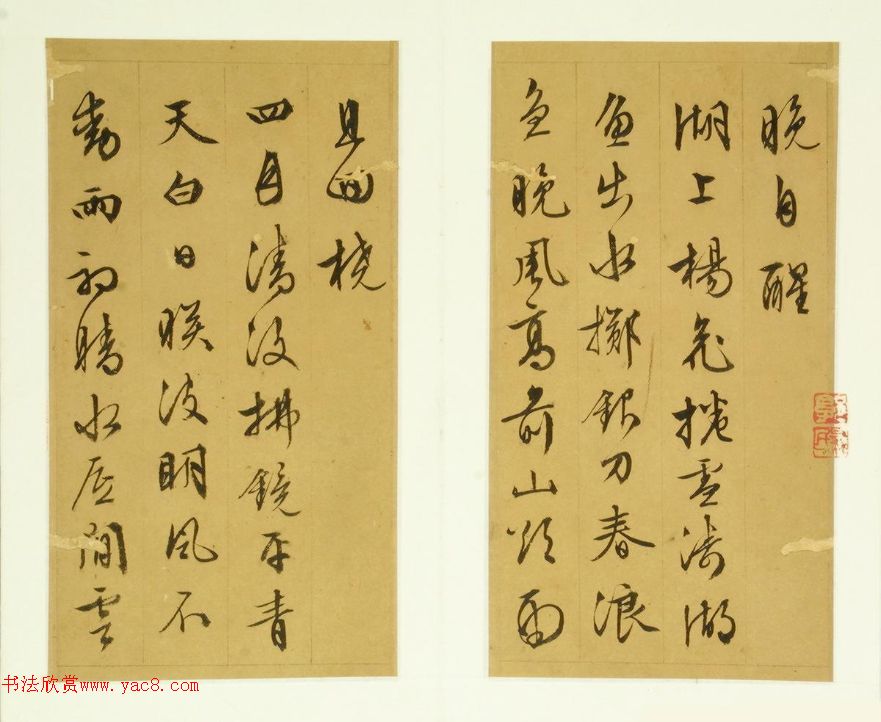 晚自醒
湖上楊花捲雪濤湖
魚出水擲銀刀春浪
急晚風高前山欲雨
且回橈
四月清波拂鏡平青
天白日映波明風不
動雨初晴水底閒雲
书法欣赏www.yac8.com